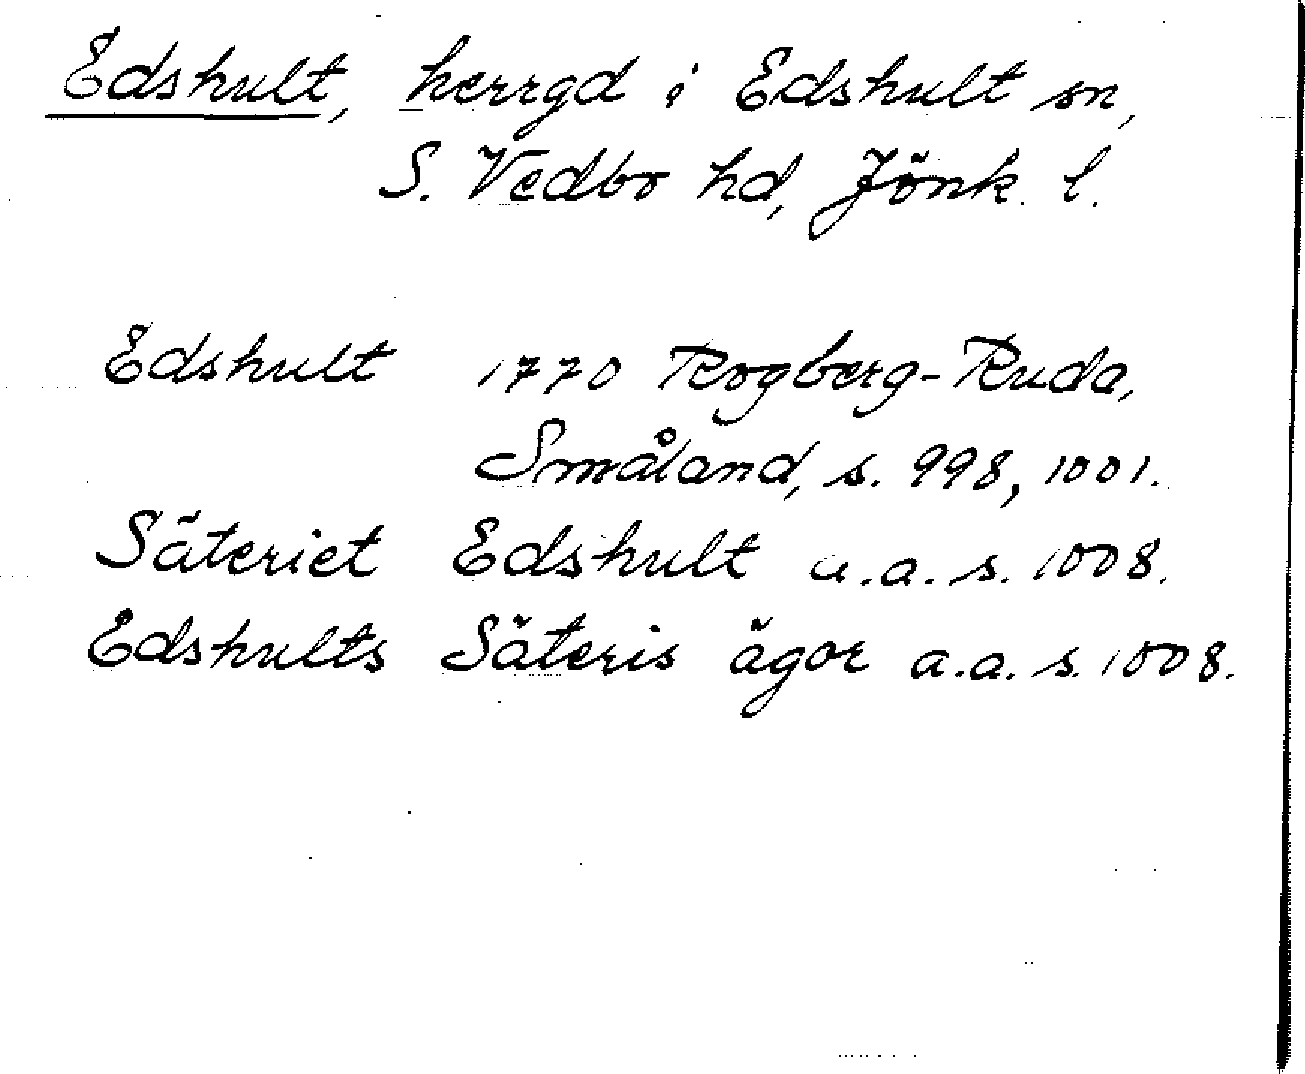 Edshult, herrgd i Edshult sn,
S. Vedbo hd, Jönk. l.
Edshult 1770 Rogberg-Ruda,
Småland, s. 998, 1001.
Säteriet Edshult a.a. s. 1008.
Edshults Säteris ägor a.a. s. 1008.